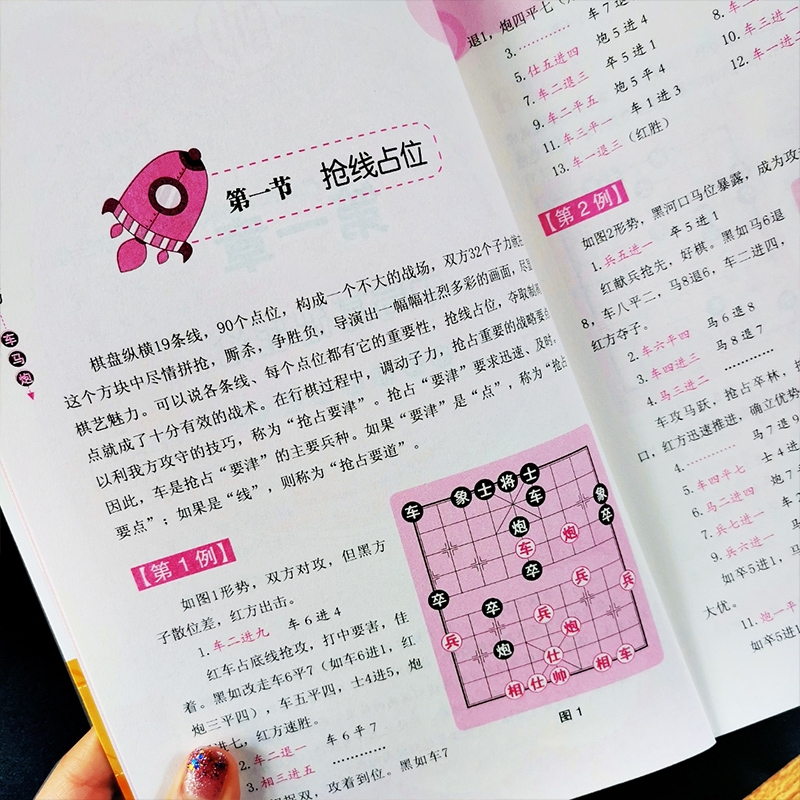 车
马
炮
第一节 抢线占位
棋盘纵横19条线，90个点位，构成一个不大的战场，双方32个子力就在
这个方块中尽情拼抢，厮杀，争胜负，导演出一幅幅壮烈多彩的画面，尽显
棋艺魅力。可以说各条线、每个点位都有它的重要性，抢线占位，夺取制高
点就成了十分有效的战术。在行棋过程中，调动子力，抢占重要的战略要点
以利我方攻守的技巧，称为“抢占要津”。抢占“要津”要求迅速、及时，
因此，车是抢占“要津”的主要兵种。如果“要津”是“点”，称为“抢占
要点”；如果是“线”，则称为“抢占要道”。
【第1例】
如图1形势，双方对攻，但黑方
子散位差，红方出击。
1.车二进九 车6进4
红车占底线抢攻，打中要害，佳
着。黑如改走车6平7（如车6进1，红
炮三平四），车五平四，士4进5，炮
进七，红方速胜。
2.车二退一 车6平7
3.相三进五 …………
捉双，攻着到位。黑如车7
车 象 士 将 士
车 象
炮 卒
车 炮
卒
卒 卒 兵 兵
兵 兵 炮
炮
仕
相 仕 帅 相 车
图1
退1，炮四平七
3.………… 车7
5.仕五进四 炮5进4
7.车二退三 卒5进1
9.车二平五 炮5平4
11.车三平一 车1进3
13.车一退三（红胜）
8.车一
10.车三进一
12.车一进
【第2例】
如图2形势，黑河口马位暴露，成为攻
1.兵五进一 卒5进1
红献兵抢先，好棋。黑如马6退
8，车八平二，马8退6，车二进四，
红方夺子。
2.车六平四 马6退8
3.车四进三 马8退7
4.马三进二 …………
车攻马跃，抢占卒林，
口，红方迅速推进，确立优势
4.………… 马7退9
5.车四平七 士4进
6.马二进四 炮7
7.兵七进一 车
9.兵六进一 马
如卒5进1，马
大优。
11.炮一平
如卒5进1